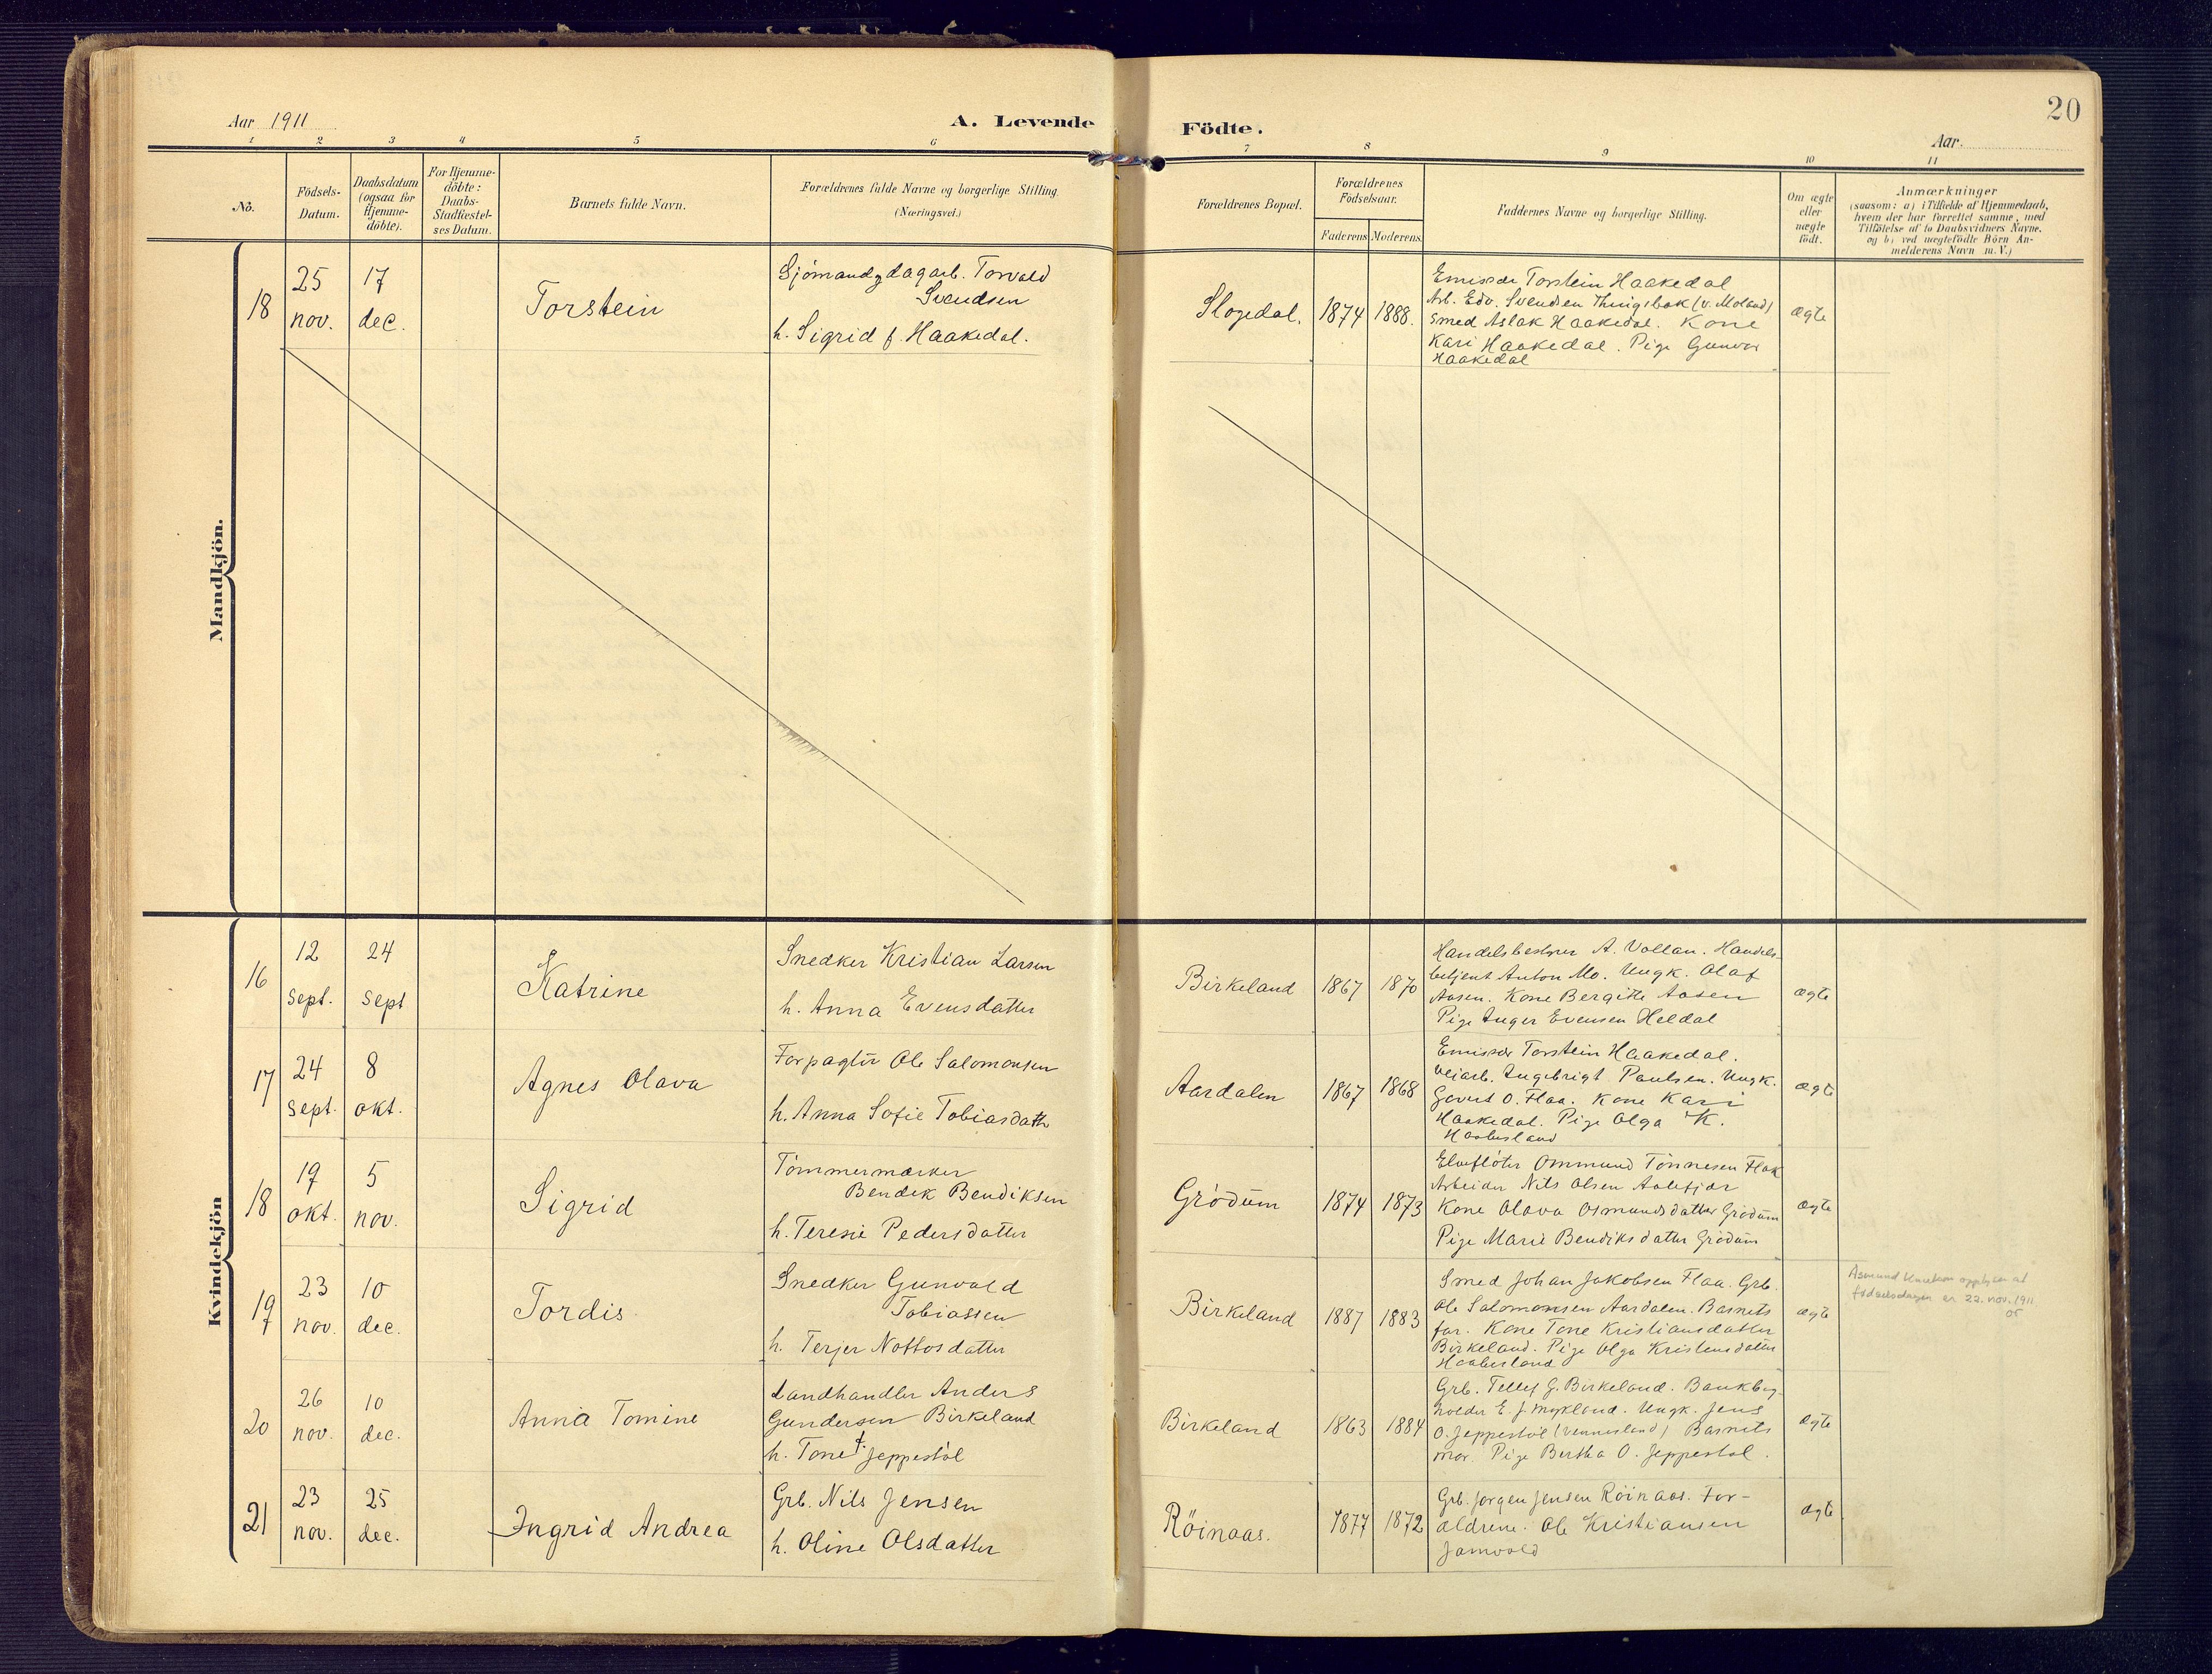 20
Aar 1911
A. Levende
Födte.
Aar.
1 2 3 4 5 6 7 8 9 10 11
No.
Födsels-
Datum.
Daabsdatum
(ogsaa for
Hjemme-
döbte).
For Hjemme-
döbte:
Daabs-
Stadfæstel-
ses Datum.
Barnets fulde Navn.
Forældrenes fulde Navne og borgerlige Stilling.
(Næringsvei.)
Forældrenes Bopæl.
Forældrenes
Födselsaar.
Faderens
Moderens.
Faddernes Navne og borgerlige Stilling.
Om ægte
eller
uægte
födt.
Anmærkninger
(saasom: a) i Tilfælde af Hjemmedaab,
hvem der har forrettet samme, med
Tilföielse af to Daabsvidners Navne.
og b) ved uægtefödte Börn An-
melderens Navn m. V.)
Mandkjön.
18
25
nov.
17
dec.
Torstein
Sjömand og dagarb. Torvald
Svendsen
h. Sigrid f. Haakedal.
Slogedal.
1874
1888.
Emissær Torstein Haakedal
Arb. Edv. Svendsen (V. Moland)
Smed Aslak Haakedal. Kone
Kari Haakedal. Pige Gunvor
Haakedal
ægte
Kvindekjön
16
12
sept.
24
sept
Katrine
Snedker Kristian Larsen
h. Anna Evensdatter
Birkeland
1867
1870
Handelsbestyrer A. Vollan. Handels-
betjent Anton Mo. Ungk. Olaf
Aasen. Kone Bergitte Aasen
Pige Inger Evensen Heldal
ægte
17
24
sept.
8
okt.
Agnes Olava
Forpagter Ole Salomonsen
h. Anna Sofie Tobiasdatt
Aardalen
1867
1868
Emissær Torstein Haakedal.
Veiarb. Ingebrigt Paulsen. Ungk.
Govert O. Flaa. Kone Kari
Haakedal. Pige Olga K.
Haabesland
ægte
18
19
okt.
5
nov.
Sigrid
Tömmermærker
Bendik Bendiksen
h. Teresie Pedersdatter
Grödum
1874
1873
Elveflöter Ommund Tönnesen Flak
Arbeider Nils Olsen Aalefjær
Kone Olava Osmundsdatter Grödum
Pige Marie Bendiksdatter Grödum
ægte
19
23
nov.
10
dec.
Tordis
Snedker Gunvald
Tobiassen
h. Terjer Nottosdatter
Birkeland
1887
1883
Smed Johan Jakobsen Flaa. Grb.
Ole Salomonsen Aardalen. Barnets
far. Kone Tone Kristiansdatter
Birkeland. Pige Olga Kristensdatter
Haabesland
ægte
Asmund Knutson opplyser at
fødselsdagen er 22. nov. 1911
20
26
nov.
10
dec.
Anna Tomine
Landhandler Anders
Gundersen Birkeland
h. Tone Jeppestöl
Birkeland
1863
1884
Grb. Tellef G. Birkeland. Bankbog-
holder E. J. Mykland. Ungk. Jens
O. Jeppestöl (Vennesland) Barnets
mor. Pige Bertha O. Jeppestöl.
ægte
21
23
nov.
25
dec.
Ingrid Andrea
Grb. Nils Jensen
h. Oline Olsdatter
Röinaas.
1877
1872
Grb. Jörgen Jensen Röinaas. For-
ældrene. Ole Kristiansen
Jamvold
ægte